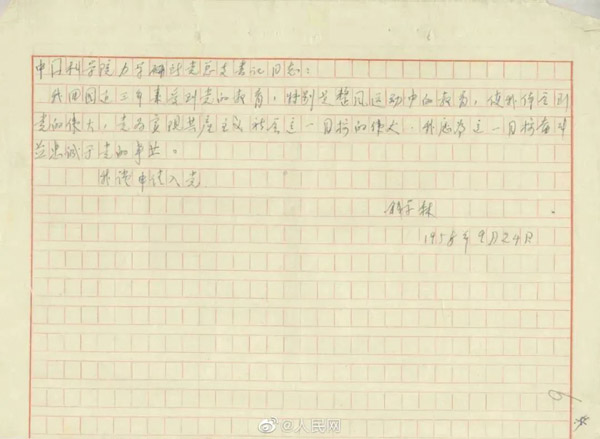 中国科学院力学研究所党总支书记同志：
我回国这三年来受到党的教育，特别是整风运动中的教育，使我体会到
党的伟大，党为实现共产主义社会这一目标的伟大。我愿为这一目标奋斗
并忠诚于党的事业。
我谨申请入党
钱学森
1958年9月24日
9
@人民网